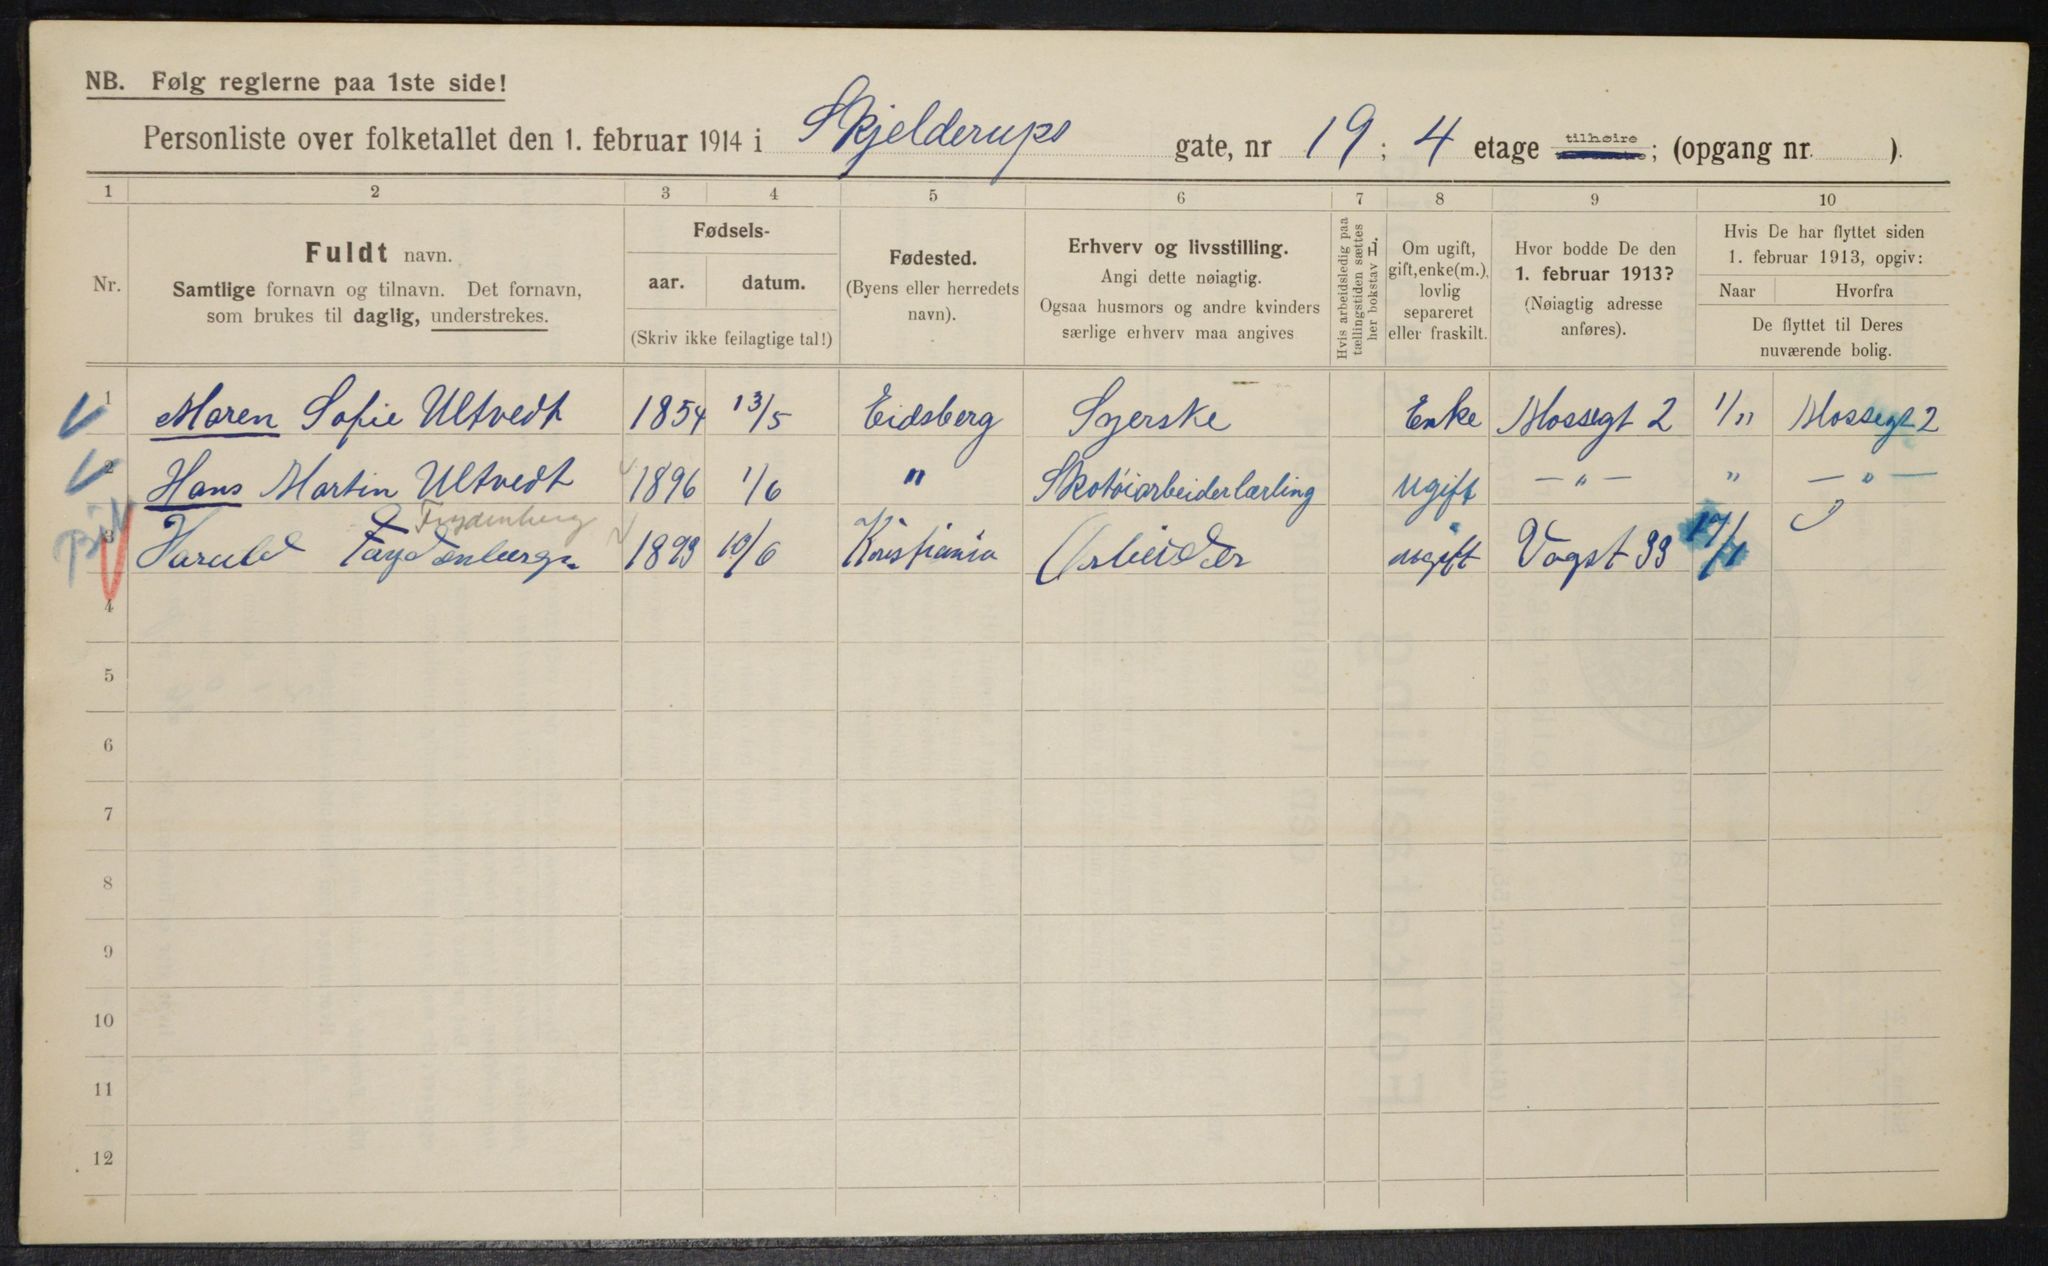 NB. Følg reglerne paa 1ste side!
Personliste over folketallet den 1. februar 1914 i Skjelderups gate, nr 19 ; 4 etage tilhøire ; (opgang nr. ).
1 2 3 4 5 6 7 8 9 10
Nr.
Fuldt navn.
Samtlige fornavn og tilnavn. Det fornavn,
som brukes til daglig, understrekes.
Fødsels-
aar. datum.
(Skriv ikke feilagtige tal!)
Fødested.
(Byens eller herredets
navn).
Erhverv og livsstilling.
Angi dette nøiagtig.
Ogsaa husmors og andre kvinders
særlige erhverv maa angives
Hvis arbeidsledig paa
tællingstiden sættes
her bokstav
Om ugift,
gift, enke(m.),
lovlig
separeret
eller fraskilt.
Hvor bodde De den
1. februar 1913?
(Nøiagtig adresse
anføres).
Hvis De har flyttet siden
1. februar 1913, opgiv:
Naar Hvorfra
De flyttet til Deres
nuværende bolig.
1 Maren Sofie Ultvedt 1854 13/5 Eidsberg Syerske Enke Mossegt 2 1/11 Mossegt 2
2 Hans Martin Ultvedt 1896 1/6 " Skotøiarbeiderlærling ugift — " — " — " —
Frydenberg
3 Harald 1893 10/6 Kristiania Arbeider ugift Vogst 33 17/1
4
5
6
7
8
9
10
11
12